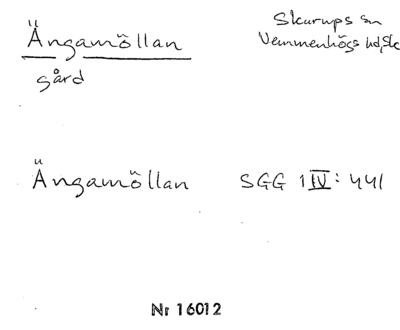 Ängamöllan
gård
Skurups sn
Vemmenhögs hd, Sk
Ängamöllan SGG 1 IV: 441
Nr 16012